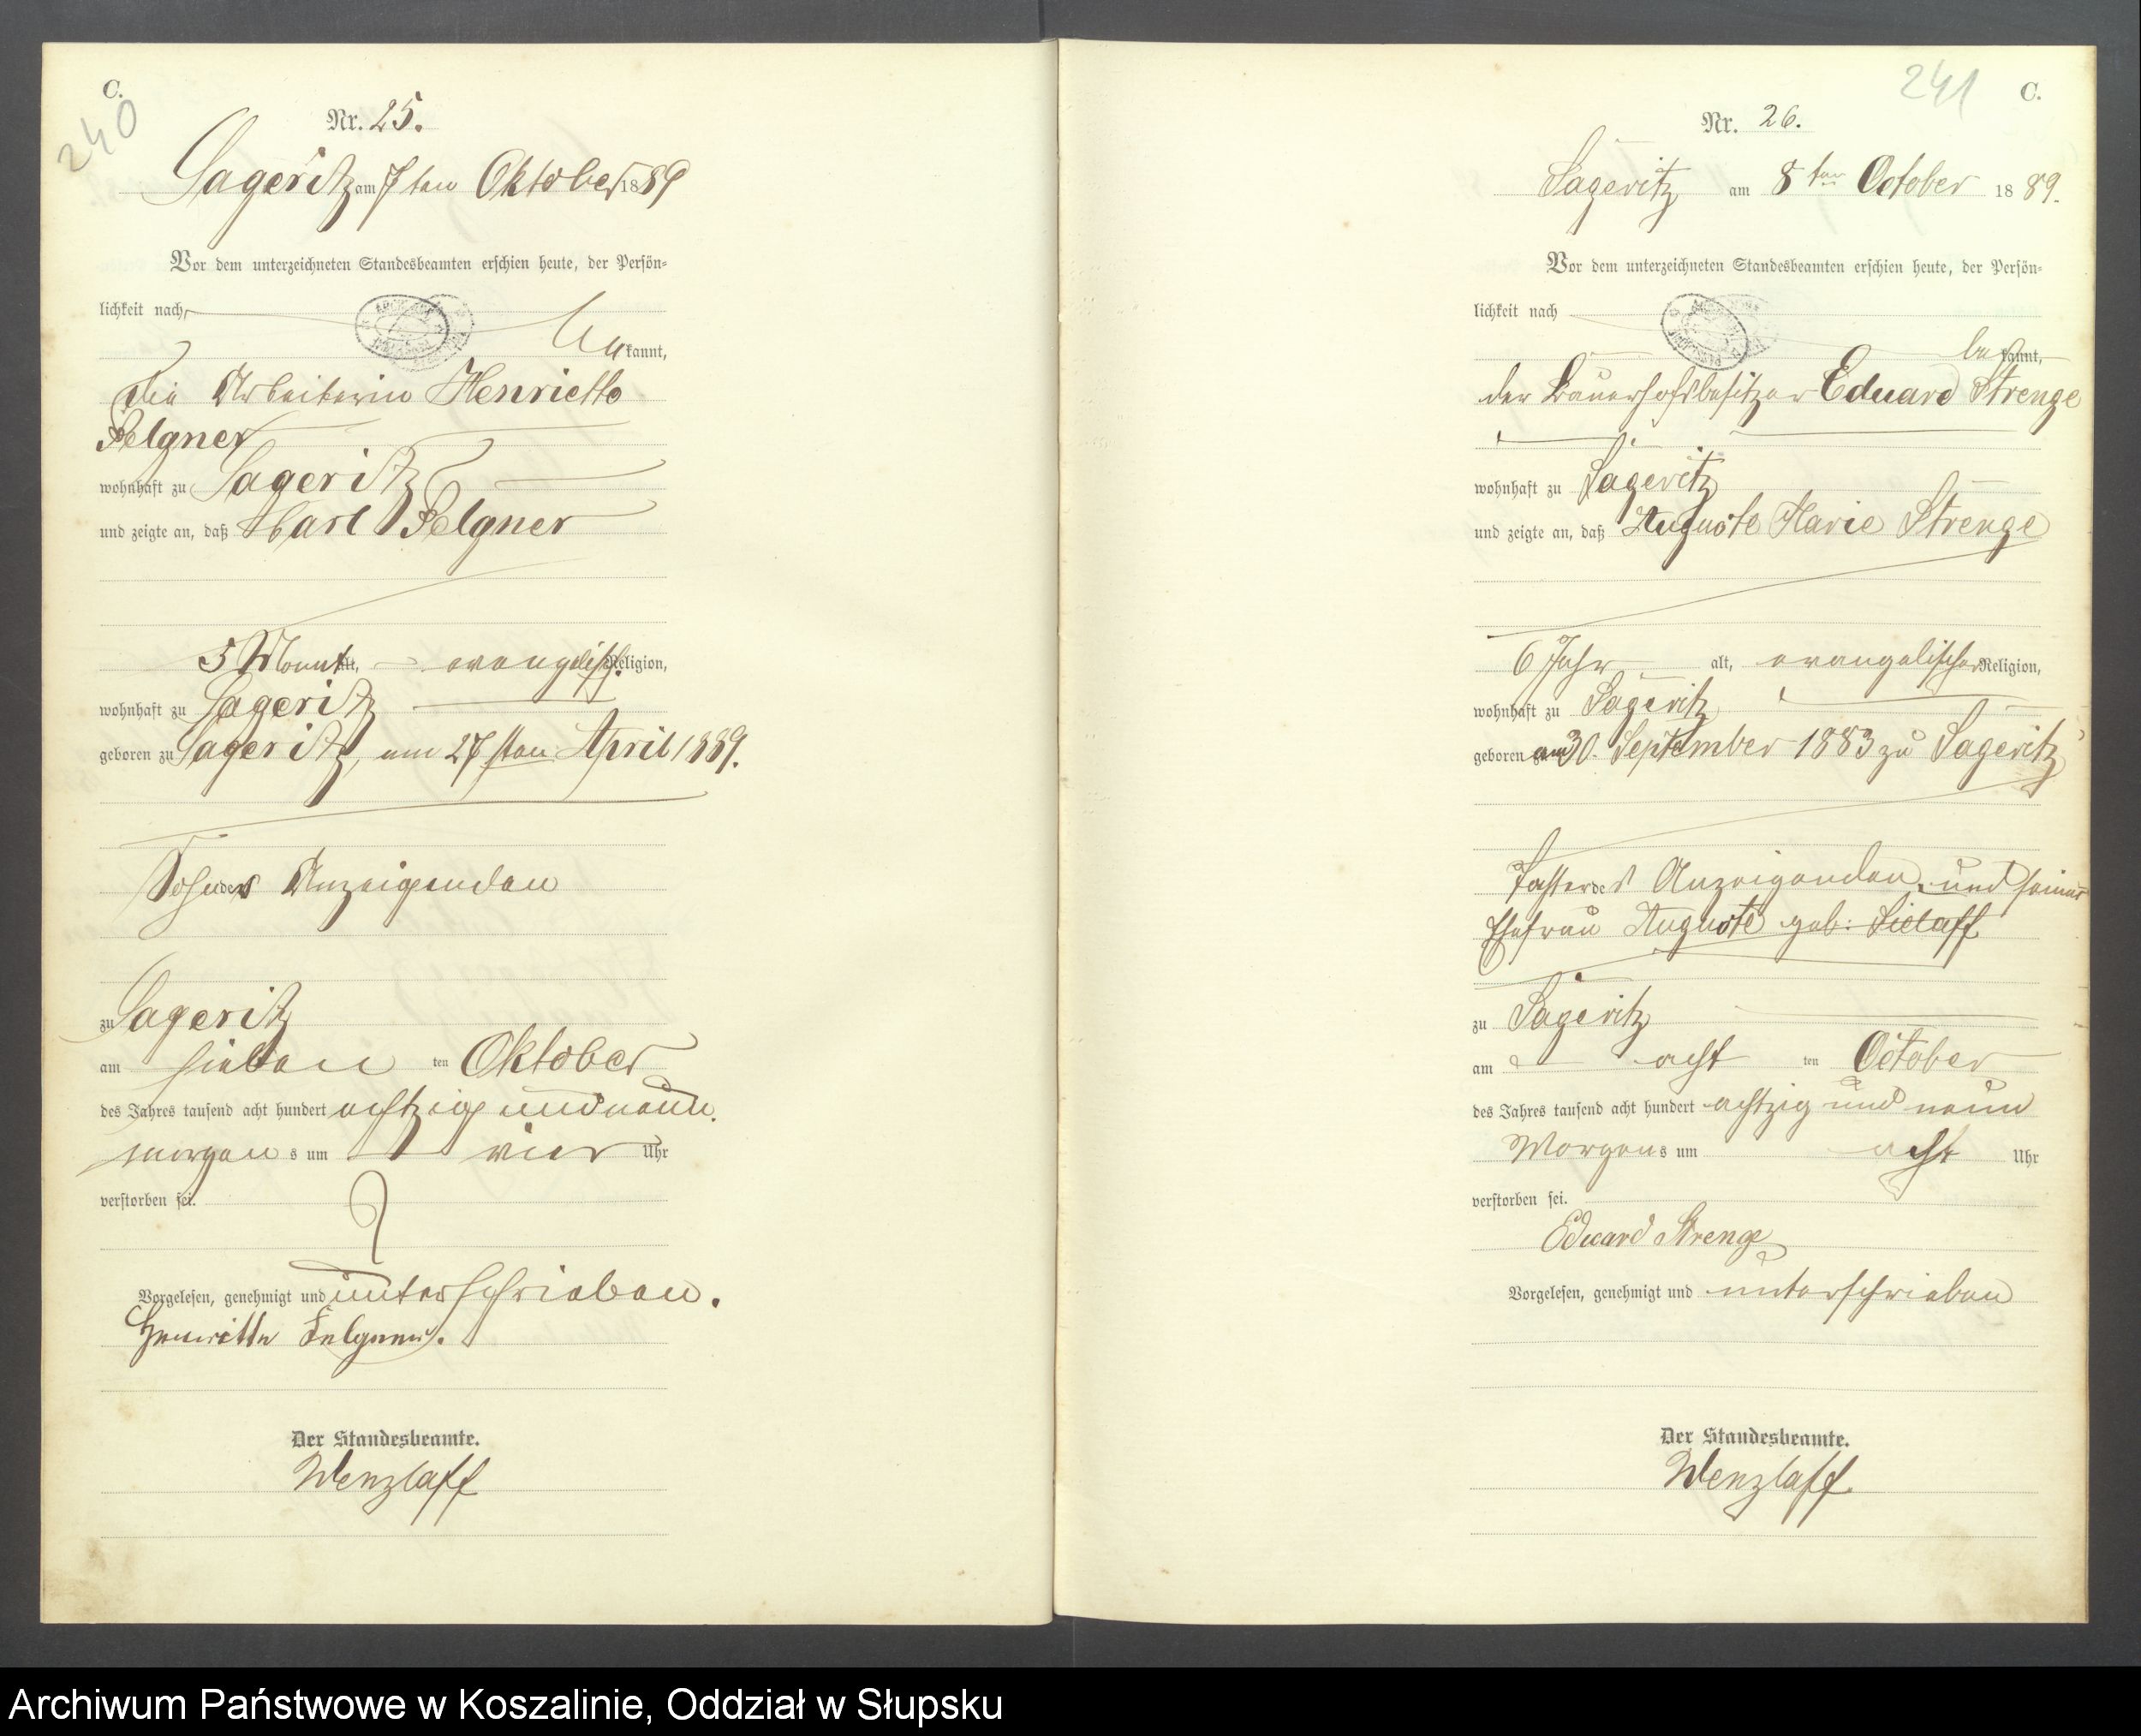 C.
240
Nr. 25.
Sageritz am 7ten Oktober 1889
Vor dem unterzeichneten Standesbeamten erschien heute, der Persön-
lichkeit nach
kannt,
die Arbeiterin Henriette
Felgner
wohnhaft zu Sageritz
und zeigte an, daß Carl Felgner
5 Monat alt, evangelisch. Religion,
wohnhaft zu Sageritz
geboren zu Sageritz, am 27sten April 1889.
Sohn der Anzeigenden
zu Sageritz
am sieben ten Oktober
des Jahres tausend acht hundert achtzig und neun.
morgens um vier Uhr
verstorben sei.
Vorgelesen, genehmigt und unterschrieben.
Henriette Felgner.
Der Standesbeamte.
Wenzlaff
241
C.
Nr. 26.
Sageritz am 8ten October 1889.
Vor dem unterzeichneten Standesbeamten erschien heute, der Persön-
lichkeit nach
bekannt,
der Bauerhofsbesitzer Eduard Strenge
wohnhaft zu Sageritz
und zeigte an, daß Auguste Marie Strenge
6 Jahr alt, evangelischer Religion,
wohnhaft zu Sageritz
geboren am 30. September 1883 zu Sageritz
Tochter des Anzeigenden und seiner
Ehefrau Auguste geb: Sielaff
zu Sageritz
am acht ten October
des Jahres tausend acht hundert achtzig und neun
Morgens um acht Uhr
verstorben sei.
Eduard Strenge
Vorgelesen, genehmigt und unterschrieben
Der Standesbeamte.
Wenzlaff
Archiwum Państwowe w Koszalinie, Oddział w Słupsku